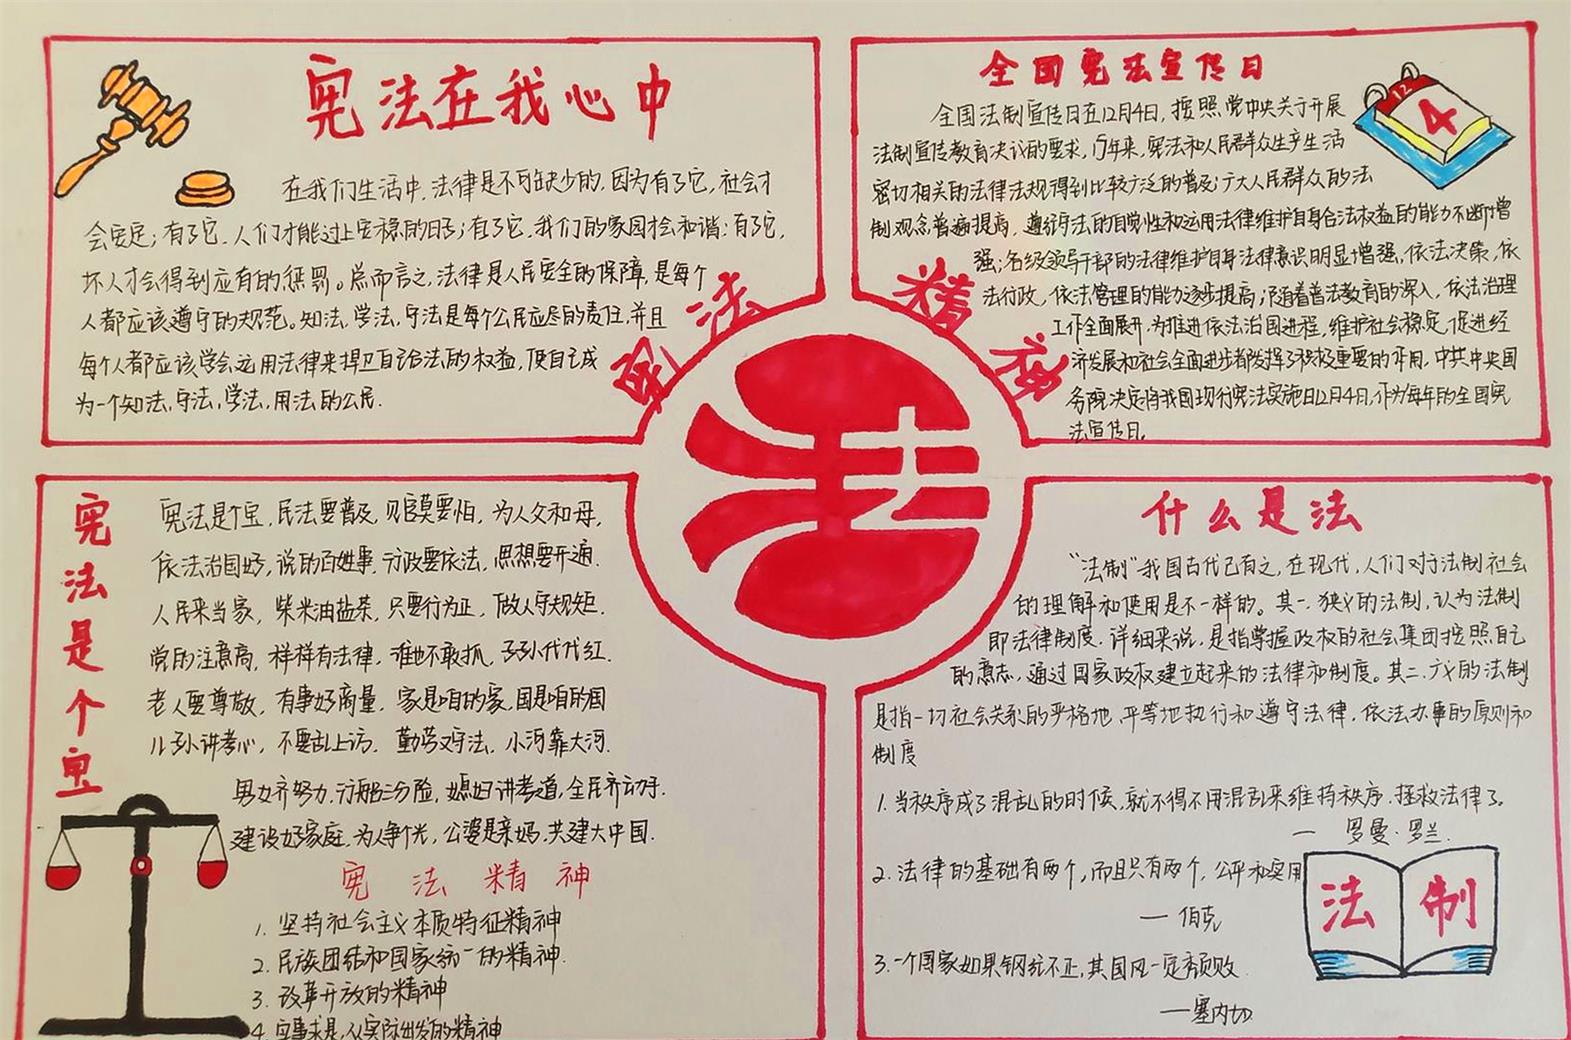 宪法在我心中
在我们生活中,法律是不可缺少的,因为有了它,社会才
会安定;有了它,人们才能过上安稳的日子;有了它,我们的家园才会和谐;有了它,
坏人才会得到应有的惩罚。总而言之,法律是人民安全的保障,是每个
人都应该遵守的规范。知法,学法,守法是每个公民应尽的责任,并且
每个人都应该学会运用法律来捍卫自己合法的权益,使自己成
为一个知法,守法,学法,用法的公民.
全国宪法宣传日
12
4
全国法制宣传日在12月4日,按照党中央关于开展
法制宣传教育决议的要求,15年来,宪法和人民群众生产生活
密切相关的法律法规得到比较广泛的普及;广大人民群众的法
制观念普遍提高,遵纪守法的自觉性和运用法律维护自身合法权益的能力不断增
强;各级领导干部的法律维护自身法律意识明显增强,依法决策,依
法行政,依法管理的能力逐步提高;随着普法教育的深入,依法治理
工作全面展开,为推进依法治国进程,维护社会稳定,促进经
济发展和社会全面进步都发挥了积极重要的作用,中共中央国
务院决定将我国现行宪法实施日12月4日,作为每年的全国宪
法宣传日。
宪法精神
法
宪法是个宝
宪法是个宝,民法要普及,见官莫要怕,为人父和母,
依法治国好,说的百姓事,行政要依法,思想要开通.
人民来当家,柴米油盐茶,只要行为正,做人守规矩.
党的注意高,样样有法律,谁也不敢抓,子子孙代代红.
老人要尊敬,有事好商量,家是咱的家,国是咱的国
儿孙讲孝心,不要乱上访.勤劳又守法,小河靠大河.
男女齐努力,行船三分险,媳妇讲孝道,全民齐动手.
建设好家庭,为人争光,公婆是亲妈,共建大中国.
宪法精神
1.坚持社会主义本质特征精神
2.民族团结和国家统一的精神.
3.改革开放的精神
4.实事求是,从实际出发的精神
什么是法
“法制”我国古代已有之,在现代,人们对于法制社会
的理解和使用是不一样的。其一,狭义的法制,认为法制
即法律制度.详细来说,是指掌握政权的社会集团按照自己
的意志,通过国家政权建立起来的法律和制度。其二,广义的法制
是指一切社会关系的严格地,平等地执行和遵守法律,依法办事的原则和
制度
1.当秩序成了混乱的时候,就不得不用混乱来维持秩序.拯救法律了。
— 罗曼·罗兰.
2.法律的基础有两个,而且只有两个,公平和实用
— 伯克
3.一个国家如果钢纪不正,其国风一定颓败.
—塞内切
法制